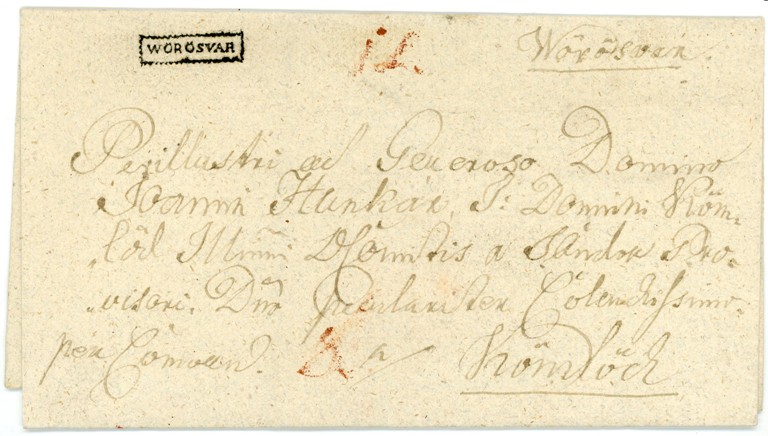 WÖRÖSVAR
Wörösvar.
Perillustri ac Generoso Domino
Joanni Hunkar, I: Dominii Köm-
löd Illmi D Comitis a Sándor Pro-
visori. Dno Peculariter Colendissimo.
per Comorn. Kömlöd